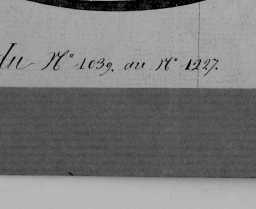 du N° 1039. au N° 1227.